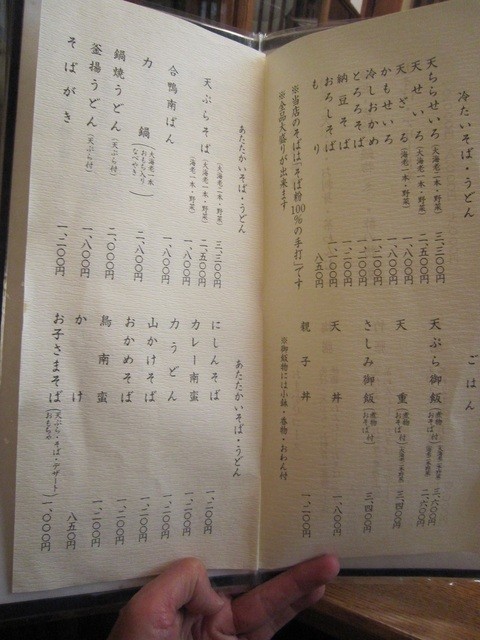 冷たいそば・うどん
天ちらせいろ(大海老一本・野菜) 三、三〇〇円
天せいろ(大海老一本・野菜) 二、五〇〇円
天ざる(海老一本・野菜) 一、八〇〇円
かもせいろ 一、八〇〇円
冷しおかめ 一、二〇〇円
とろろそば 一、二〇〇円
納豆そば 一、二〇〇円
おろしそば 一、一〇〇円
もり 八五〇円
※当店のそばは「そば粉100%の手打」です
※全品大盛りが出来ます
ごはん
天ぷら御飯(煮物・おそば付)
天重(煮物・おそば付) 三、四〇〇円
さしみ御飯(煮物・おそば付) 三、四〇〇円
天丼 一、八〇〇円
親子丼 一、二〇〇円
※御飯物には小鉢・香物・おわん付
あたたかいそば・うどん
天ぷらそば(大海老一本・野菜) 三、三〇〇円
(大海老一本・野菜) 二、五〇〇円
(海老一本・野菜) 一、八〇〇円
合鴨南ばん 一、八〇〇円
力鍋(大海老一本・おもち入りなべやき) 二、八〇〇円
鍋焼うどん(天ぷら付) 二、〇〇〇円
釜揚うどん(天ぷら付) 一、八〇〇円
そばがき 一、二〇〇円
あたたかいそば・うどん
にしんそば 一、二〇〇円
カレー南蛮 一、二〇〇円
力うどん 一、二〇〇円
山かけそば 一、二〇〇円
おかめそば 一、二〇〇円
鳥南蛮 一、二〇〇円
かけ 八五〇円
お子さまそば(天ぷら・そば・デザート・おもちゃ) 一、〇〇〇円